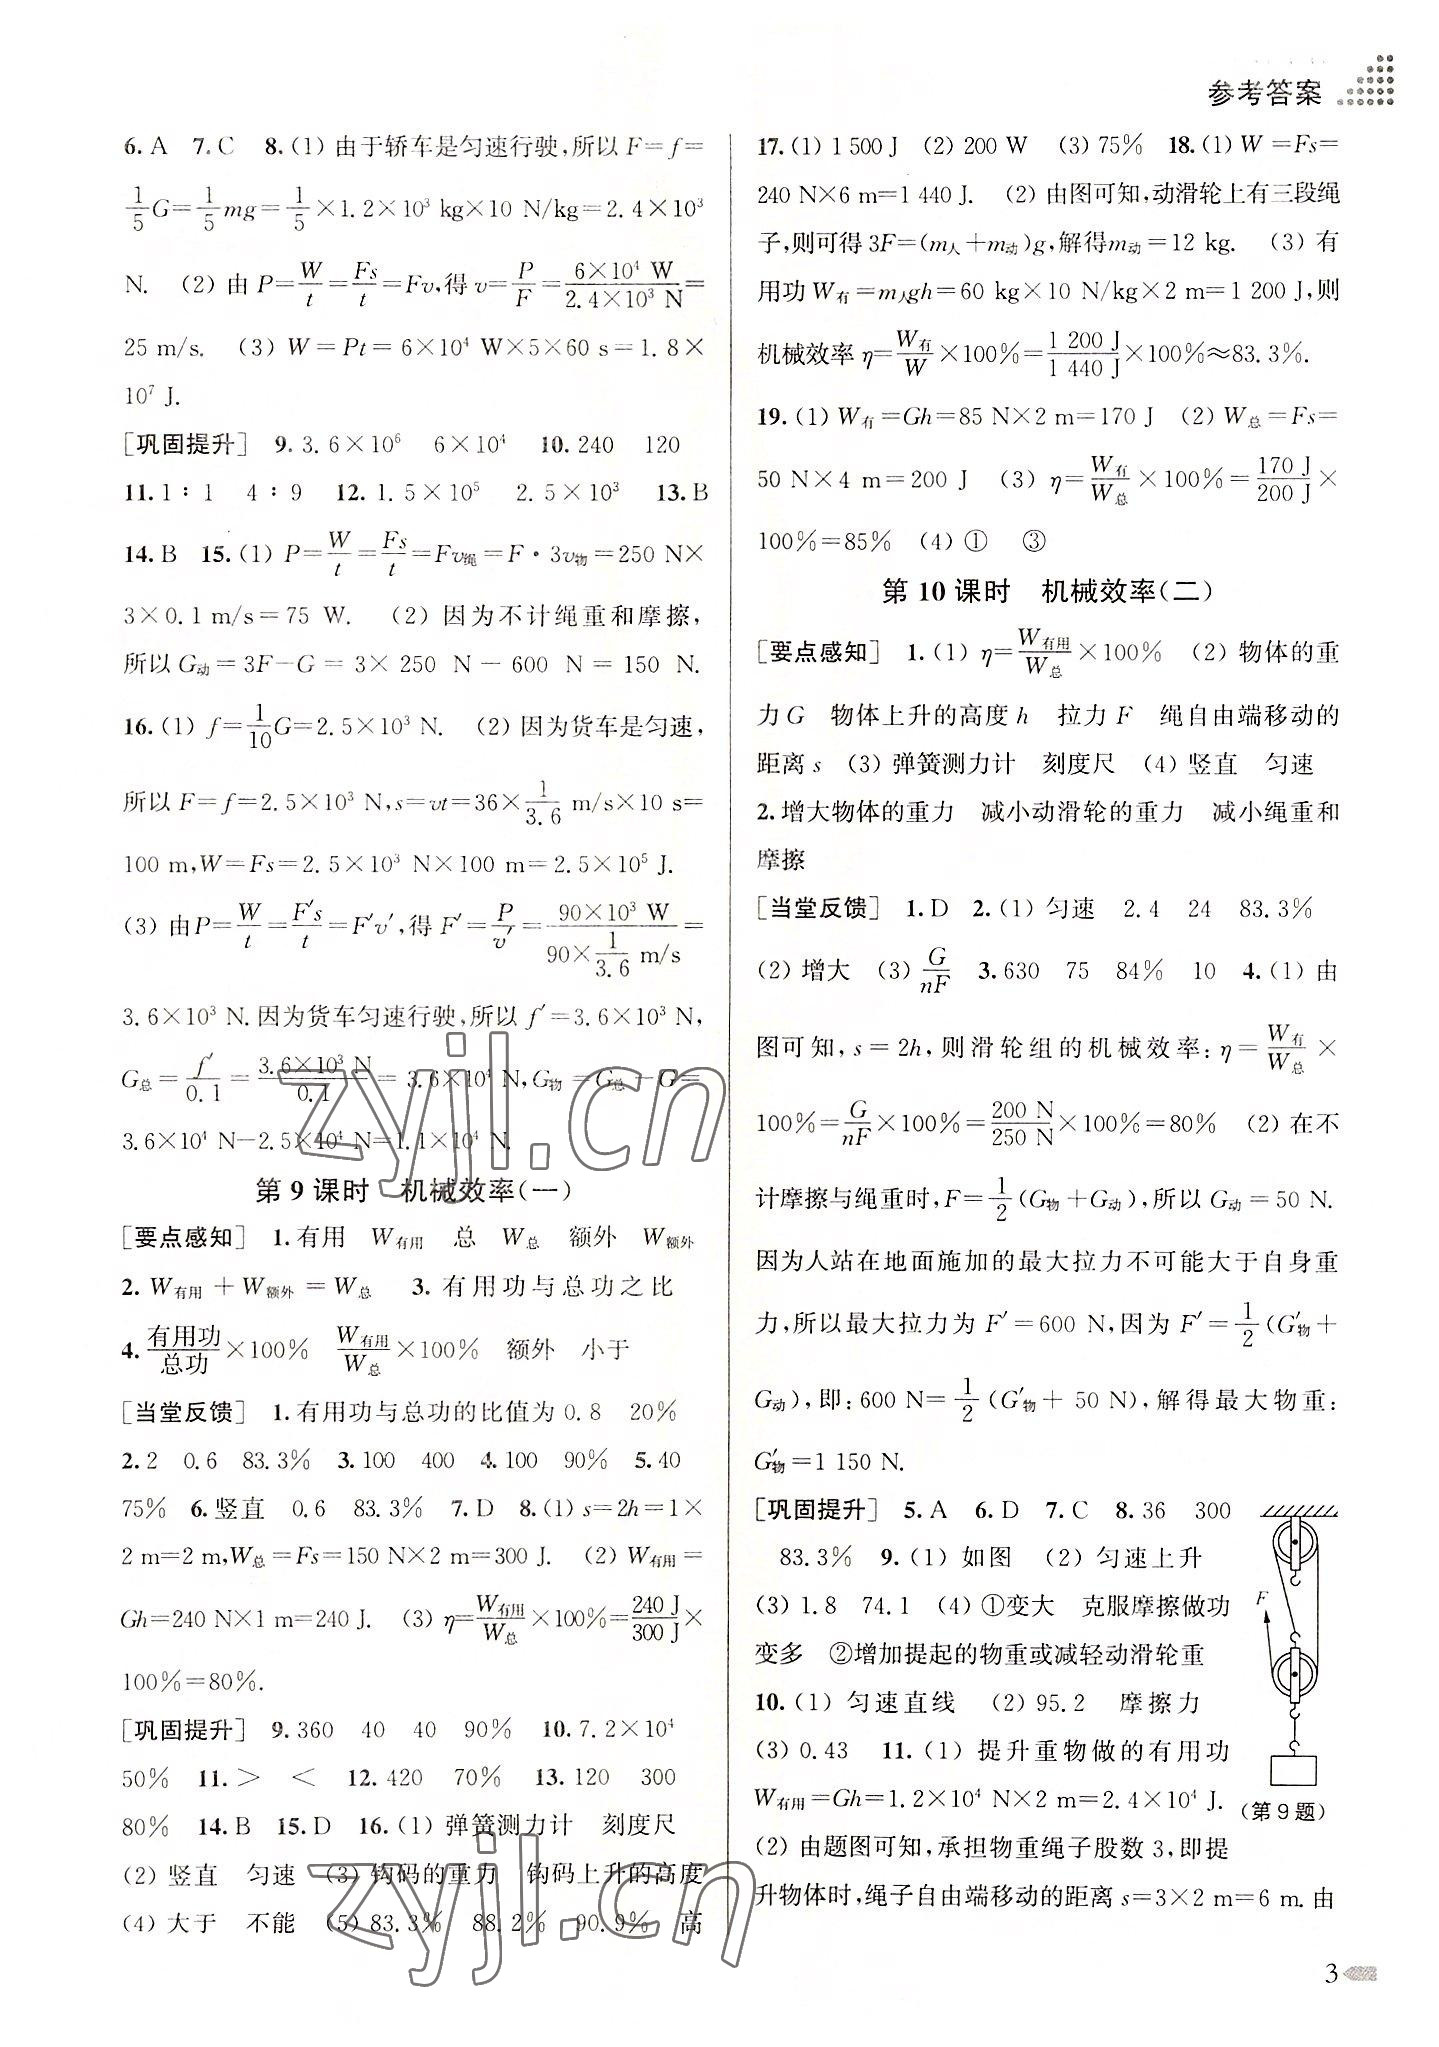 参考答案
6. A 7. C 8. (1) 由于轿车是匀速行驶,所以 F=f=
1/5 G=1/5 mg=1/5×1.2×10³ kg×10 N/kg=2.4×10³
N. (2) 由 P=W/t=Fs/t=Fv,得 v=P/F=6×10⁴ W/2.4×10³ N=
25 m/s. (3) W=Pt=6×10⁴ W×5×60 s=1.8×
10⁷ J.
[巩固提升] 9. 3.6×10⁶ 6×10⁴ 10. 240 120
11. 1∶1 4∶9 12. 1.5×10⁵ 2.5×10³ 13. B
14. B 15. (1) P=W/t=Fs/t=Fv绳=F·3v物=250 N×
3×0.1 m/s=75 W. (2) 因为不计绳重和摩擦,
所以 G动=3F-G=3×250 N-600 N=150 N.
16. (1) f=1/10 G=2.5×10³ N. (2) 因为货车是匀速,
所以 F=f=2.5×10³ N,s=vt=36×1/3.6 m/s×10 s=
100 m,W=Fs=2.5×10³ N×100 m=2.5×10⁵ J.
(3) 由P=W/t=F′s/t=F′v′,得 F′=P/v′=90×10³ W/(90×1/3.6 m/s)=
3.6×10³ N.因为货车匀速行驶,所以 f′=3.6×10³ N,
G总=f′/0.1=3.6×10³ N/0.1=3.6×10⁴ N,G物=G总-G=
3.6×10⁴ N-2.5×10⁴ N=1.1×10⁴ N.
第 9 课时 机械效率(一)
[要点感知] 1. 有用 W有用 总 W总 额外 W额外
2. W有用+W额外=W总 3. 有用功与总功之比
4. 有用功/总功×100% W有用/W总×100% 额外 小于
[当堂反馈] 1. 有用功与总功的比值为 0.8 20%
2. 2 0.6 83.3% 3. 100 400 4. 100 90% 5. 40
75% 6. 竖直 0.6 83.3% 7. D 8. (1) s=2h=1×
2 m=2 m,W总=Fs=150 N×2 m=300 J. (2) W有用=
Gh=240 N×1 m=240 J. (3) η=W有用/W总×100%=240 J/300 J×
100%=80%.
[巩固提升] 9. 360 40 40 90% 10. 7.2×10⁴
50% 11. > < 12. 420 70% 13. 120 300
80% 14. B 15. D 16. (1) 弹簧测力计 刻度尺
(2) 竖直 匀速 (3) 钩码的重力 钩码上升的高度
(4) 大于 不能 (5) 83.3% 88.2% 90.9% 高
17. (1) 1 500 J (2) 200 W (3) 75% 18. (1) W=Fs=
240 N×6 m=1 440 J. (2) 由图可知,动滑轮上有三段绳
子,则可得 3F=(m人+m动)g,解得m动=12 kg. (3) 有
用功 W有=m人gh=60 kg×10 N/kg×2 m=1 200 J,则
机械效率 η=W有/W×100%=1 200 J/1 440 J×100%≈83.3%.
19. (1) W有=Gh=85 N×2 m=170 J (2) W总=Fs=
50 N×4 m=200 J (3) η=W有/W总×100%=170 J/200 J×
100%=85% (4) ① ③
第 10 课时 机械效率(二)
[要点感知] 1. (1) η=W有用/W总×100% (2) 物体的重
力 G 物体上升的高度 h 拉力 F 绳自由端移动的
距离 s (3) 弹簧测力计 刻度尺 (4) 竖直 匀速
2. 增大物体的重力 减小动滑轮的重力 减小绳重和
摩擦
[当堂反馈] 1. D 2. (1) 匀速 2.4 24 83.3%
(2) 增大 (3) G/nF 3. 630 75 84% 10 4. (1) 由
图可知, s=2h,则滑轮组的机械效率: η=W有/W总×
100%=G/nF×100%=200 N/250 N×100%=80% (2) 在不
计摩擦与绳重时,F=1/2(G物+G动),所以 G动=50 N.
因为人站在地面施加的最大拉力不可能大于自身重
力,所以最大拉力为 F′=600 N,因为 F′=1/2(G′物+
G动),即:600 N=1/2(G′物+50 N),解得最大物重:
G′物=1 150 N.
[巩固提升] 5. A 6. D 7. C 8. 36 300
83.3% 9. (1) 如图 (2) 匀速上升
(3) 1.8 74.1 (4) ①变大 克服摩擦做功
变多 ②增加提起的物重或减轻动滑轮重
10. (1) 匀速直线 (2) 95.2 摩擦力
(3) 0.43 11. (1) 提升重物做的有用功
W有用=Gh=1.2×10⁴ N×2 m=2.4×10⁴ J.
(2) 由题图可知,承担物重绳子股数 3,即提
升物体时,绳子自由端移动的距离 s=3×2 m=6 m. 由
F
(第 9 题)
3
zyjl.cn
zyjl.cn